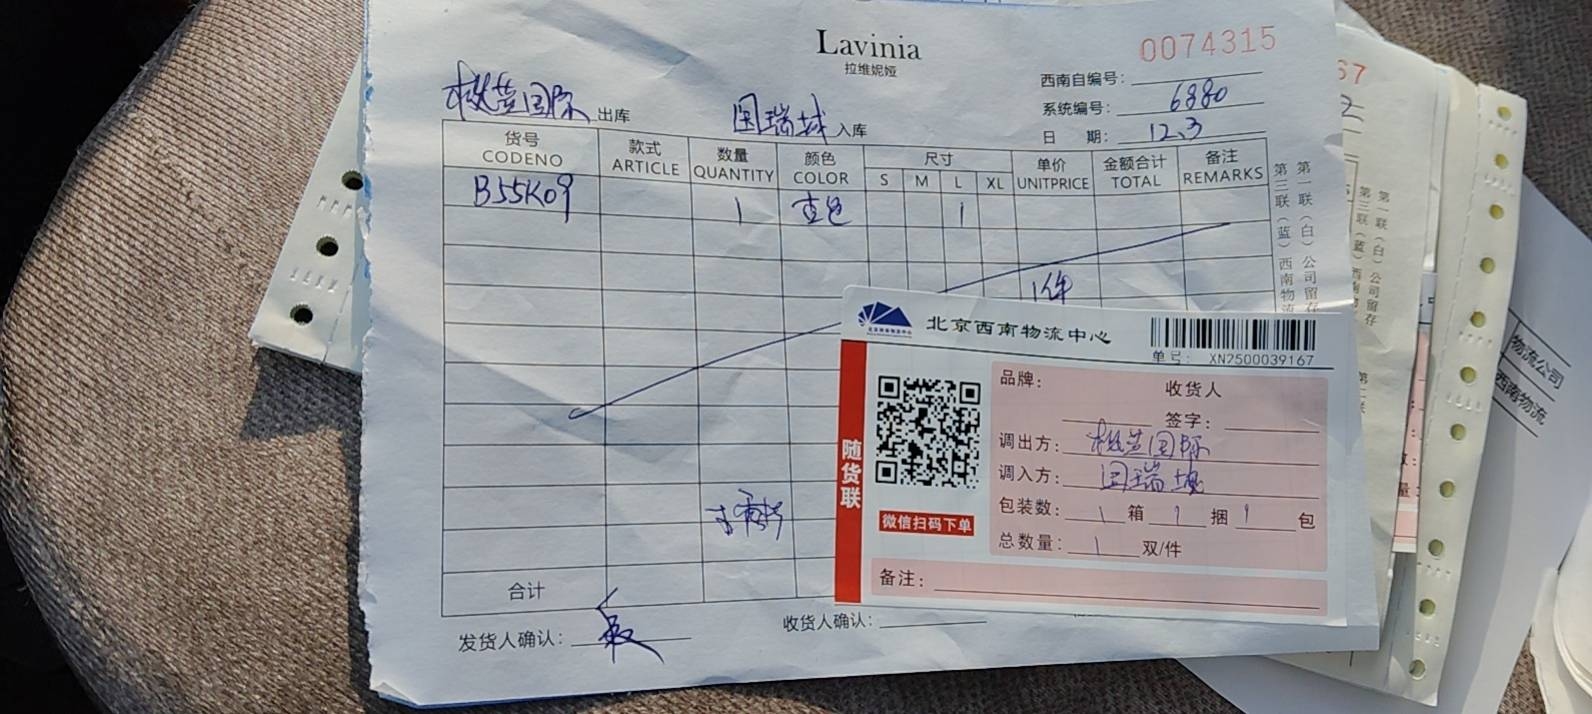 Lavinia
拉维妮娅
0074315
西南自编号:
系统编号: 6880
日 期: 12.3
国际 出库 国瑞城 入库
货号 款式 数量 颜色 尺寸 单价 金额合计 备注
CODENO ARTICLE QUANTITY COLOR S M L XL UNITPRICE TOTAL REMARKS
B55K09 1 杏色 1
1件
合计
发货人确认:
收货人确认:
第一联(白)公司留存
第三联(蓝)西南物流
北京西南物流中心
单号: XN2500039167
随货联
微信扫码下单
品牌: 收货人
签字:
调出方: 国际
调入方: 国瑞城
包装数: 1 箱 1 捆 1 包
总数量: 1 双/件
备注:
67
第一联(白)公司留存
第三联(蓝)西南
物流公司
西南物流